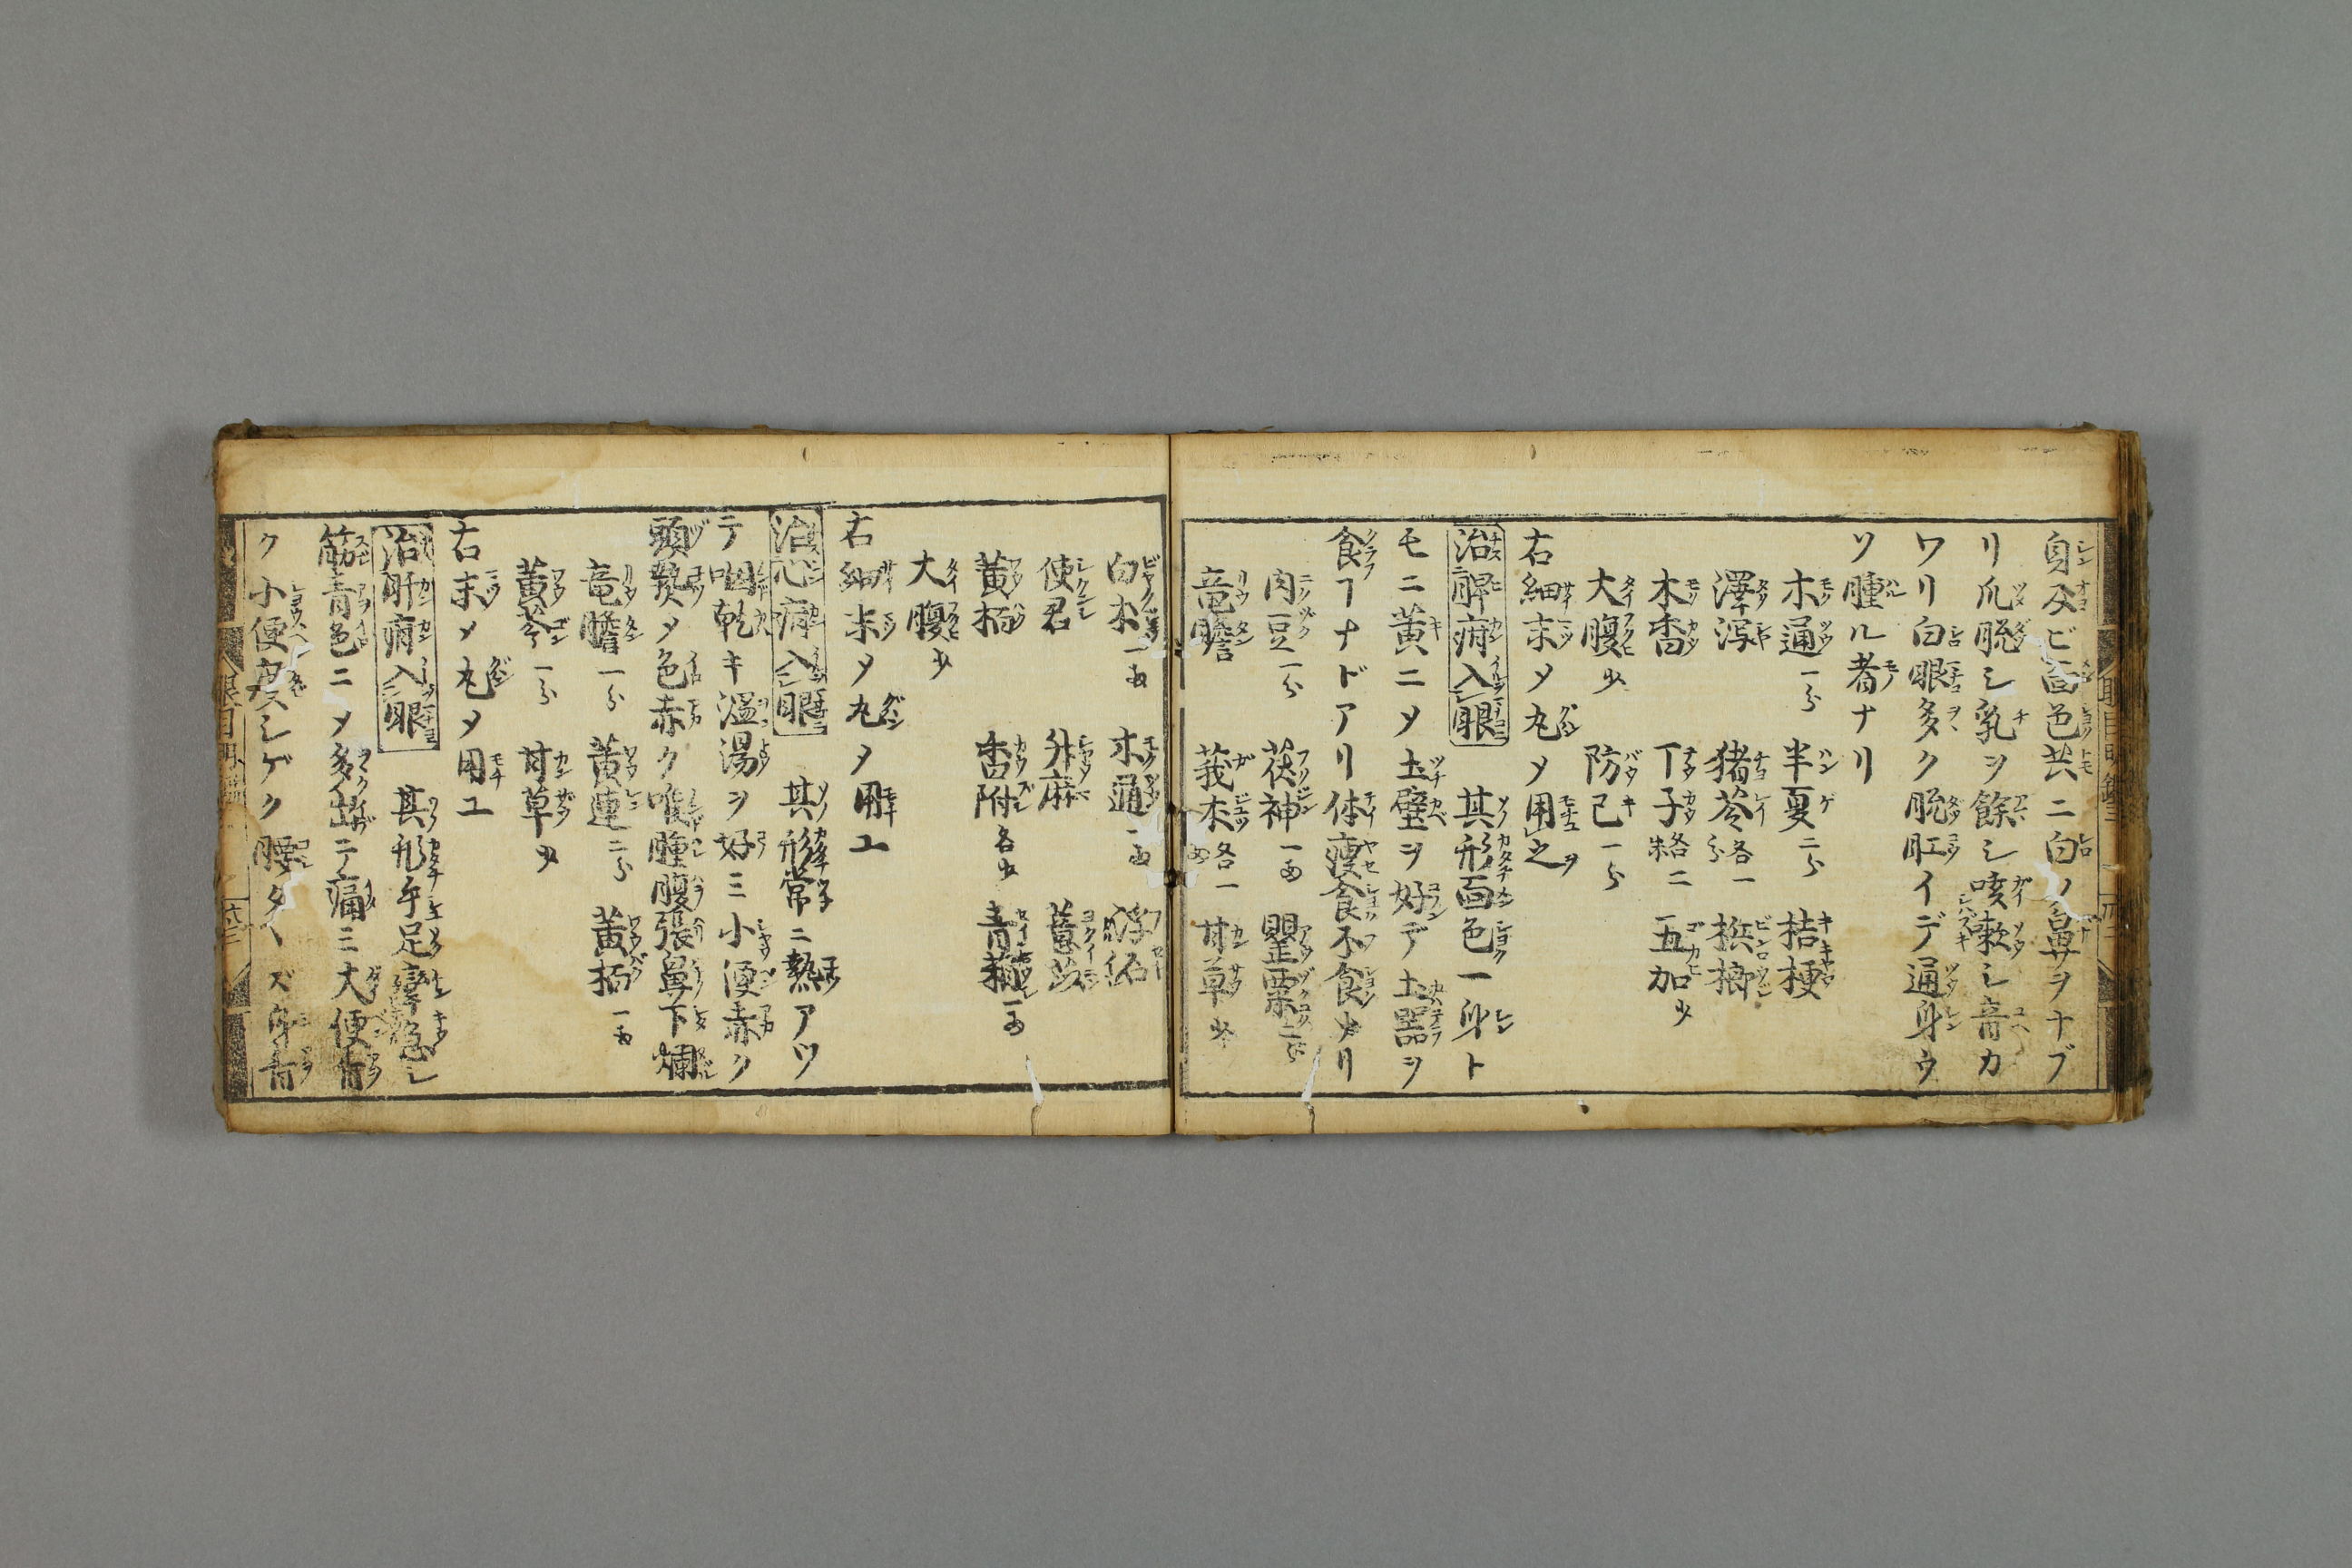 身及ビ面色共ニ白ク鼻ヲナブ
リ爪脱シ乳ヲ餘シ咳嗽シ音カ
ワリ白眼多ク脱肛イデ通身ウ
ソ腫ル者ナリ
木通一分 半夏二分 桔梗
澤瀉 猪苓各一分 梹榔
木香 丁子各二 五加少
大腹少 防己一分
右細末メ丸メ用之
治脾疳入眼 其形面色一身ト
モニ黄ニメ土壁ヲ好デ土器ヲ
食ヿナドアリ体痩食不食ナリ
肉豆一分 茯神一両 罌粟二分
竜膽 莪朮各一両 甘草少
白朮一両 木通一両 浮石
使君 升麻 薏苡
黄柏 香附各少 青黛一両
大腹少
右細末メ丸メ用ユ
治心疳入眼 其形常ニ熱アツ
テ咽乾キ温湯ヲ好ミ小便赤ク
頭發メ色赤ク喉腫腹張鼻下爛
竜膽一分 黄連二分 黄柏一両
黄芩一分 甘草少
右末メ丸メ用ユ
治肝疳入眼 其形手足攣急シ
筋青色ニメ多出テ痛ミ大便青
ク小便シゲク腰タヽズ身青